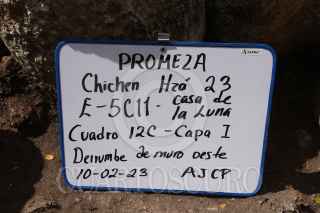 PROMEZA
Chichen Hzá 23
E-5C11- casa de
la Luna
Cuadro 12C - Capa I
Derrumbe de muro oeste
10-02-23 AJCP
CUARTOSCURO